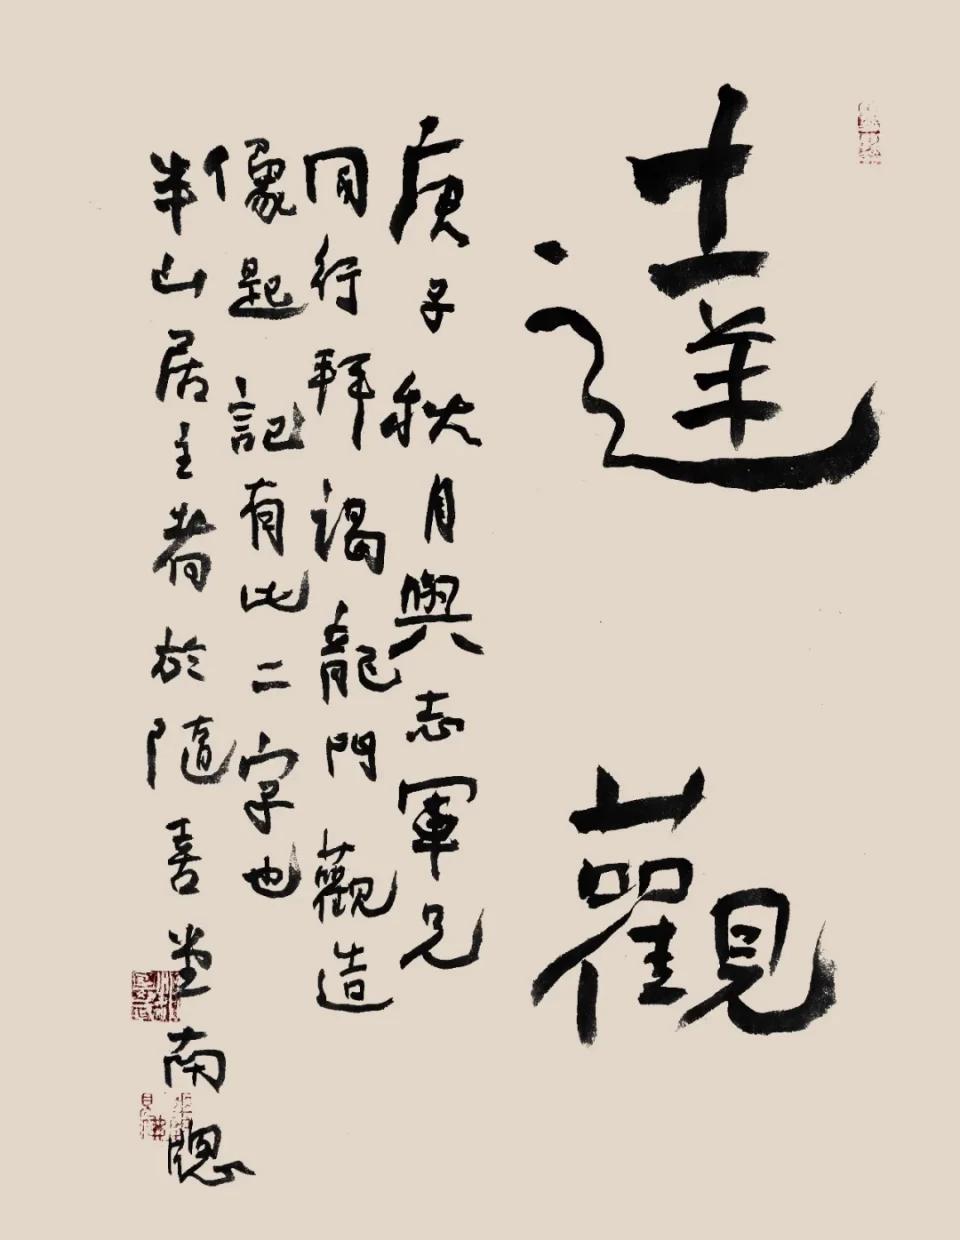 達觀
庚子秋月與志軍兄
同行拜謁龍門觀造
像起記有此二字也
半山居主者於隨喜堂南窗